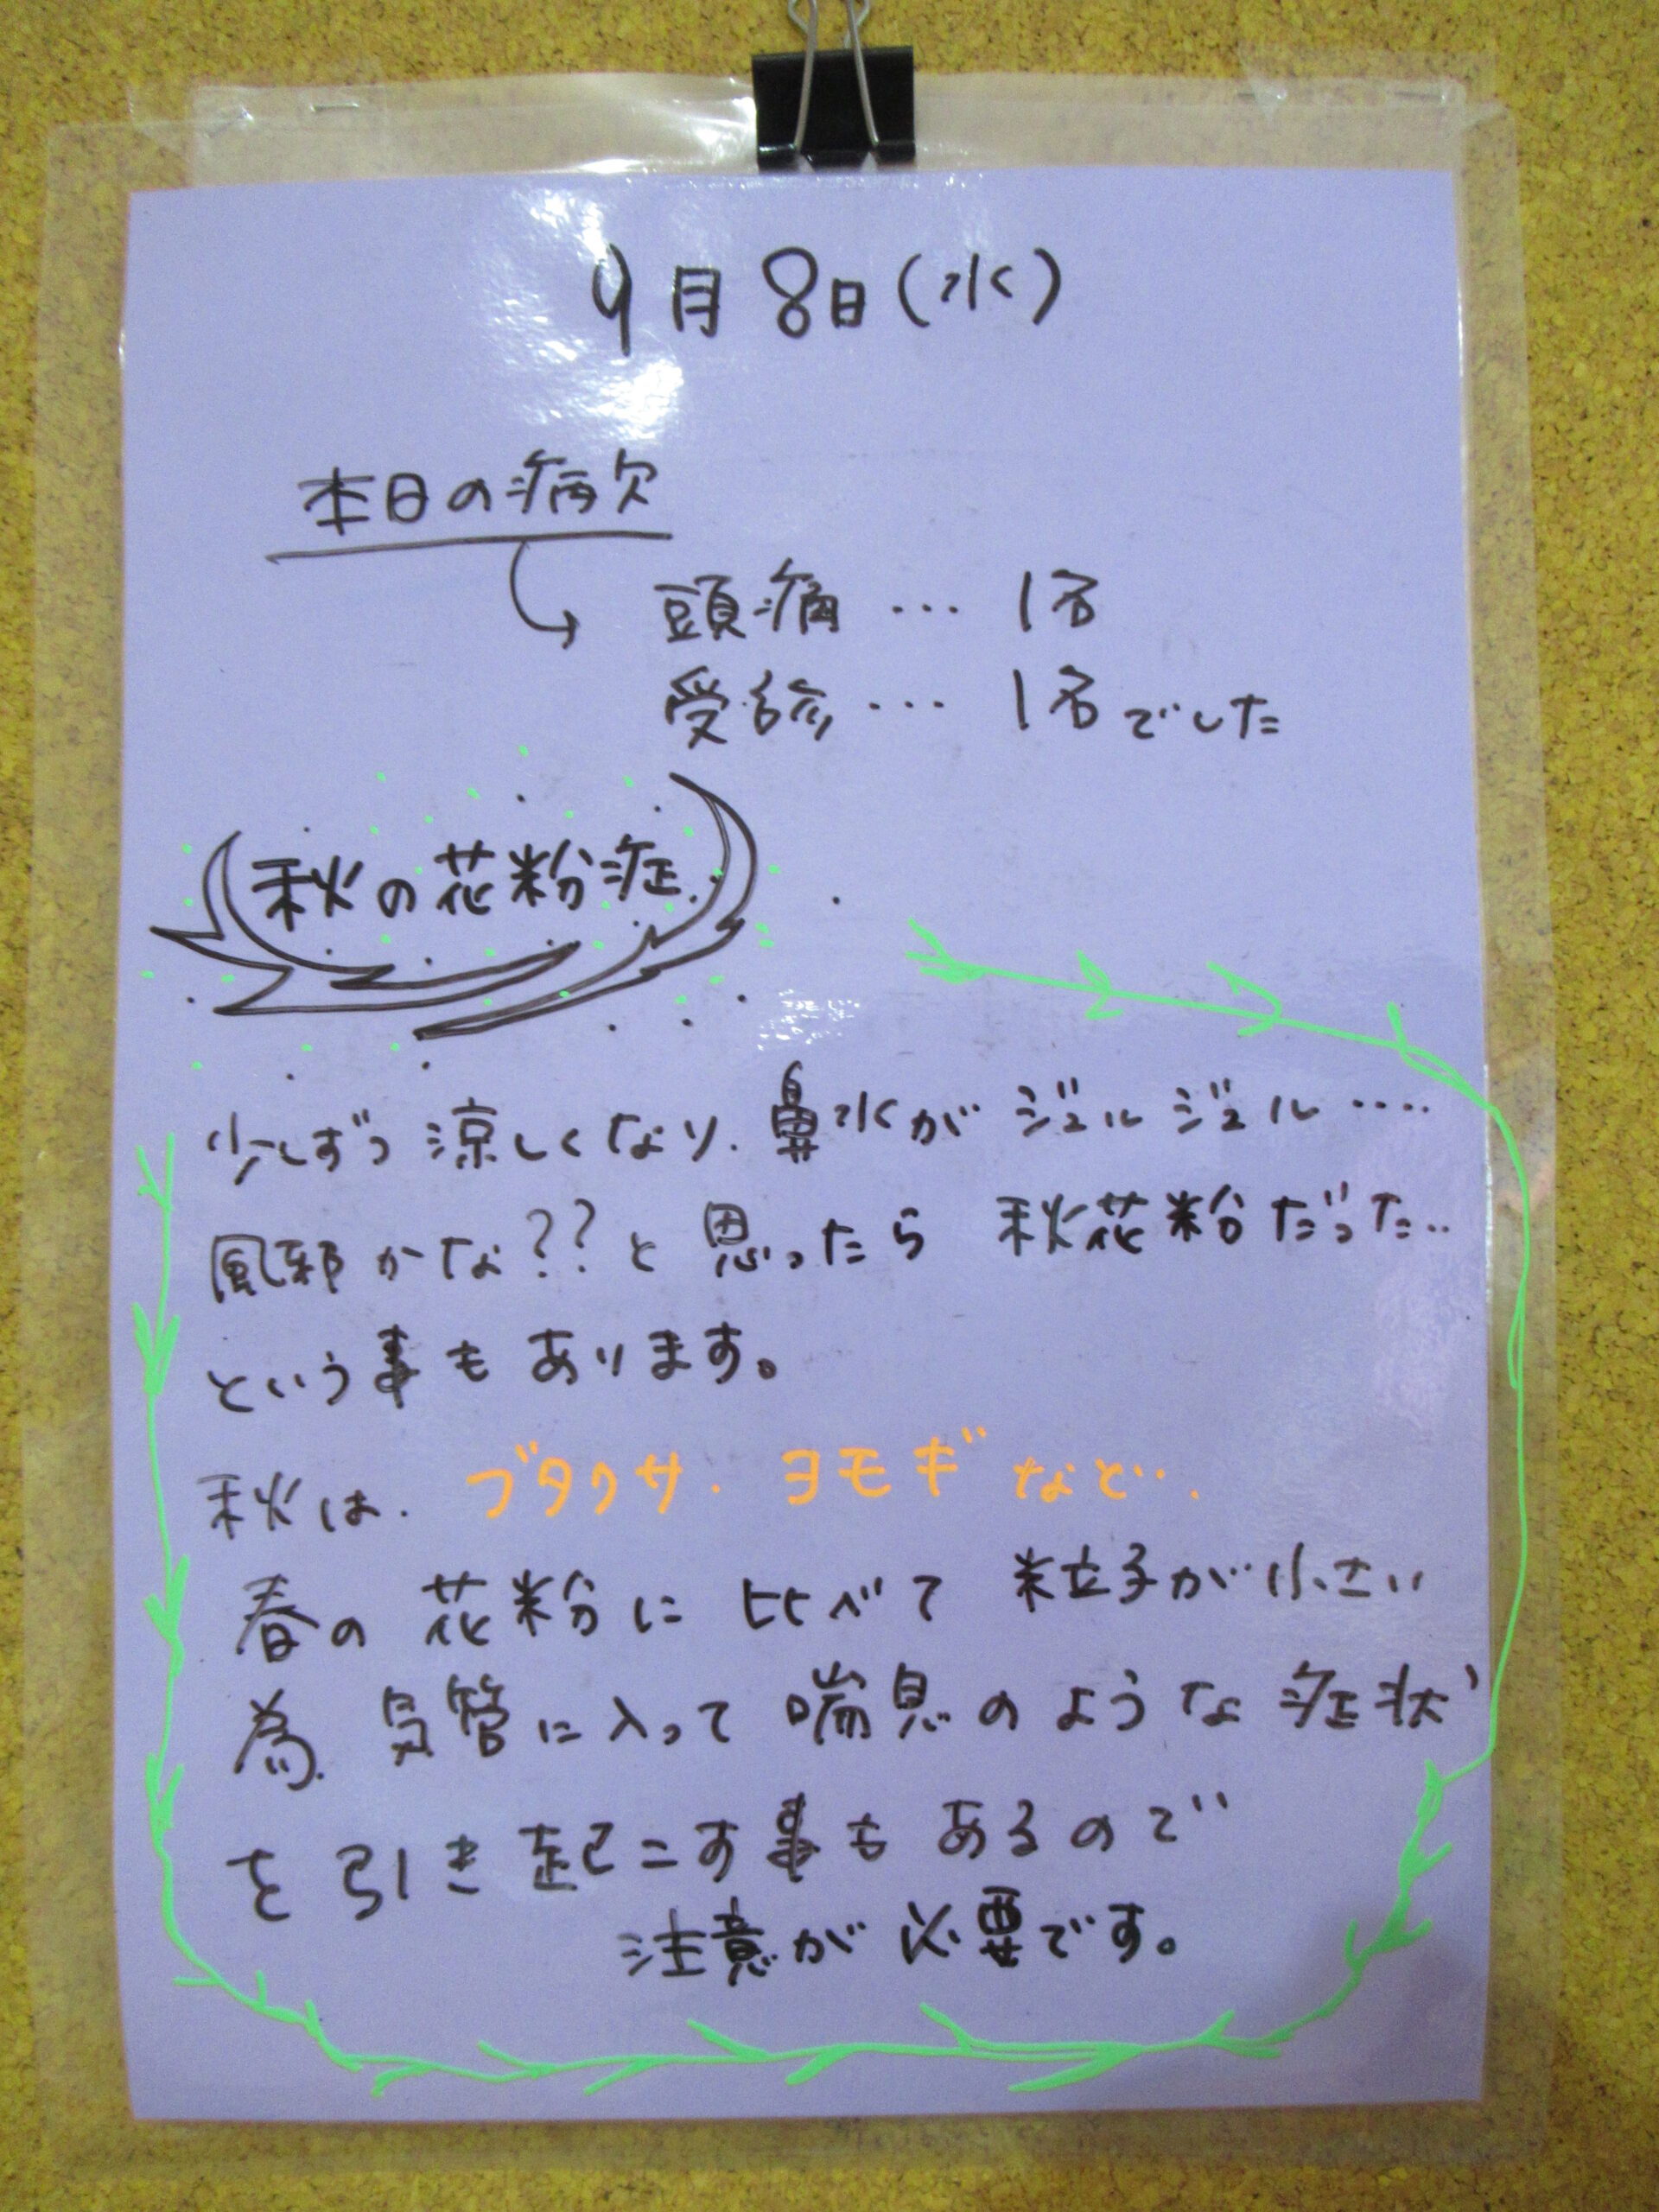 9月8日(水)
本日の病欠
頭痛 … 1名
受診 … 1名でした
秋の花粉症
少しずつ涼しくなり、鼻水がジュルジュル‥‥
風邪かな??と思ったら 秋花粉だった‥
という事もあります。
秋は、ブタクサ、ヨモギなど‥、
春の花粉に比べて粒子が小さい
為、気管に入って喘息のような症状
を引き起こす事もあるので
注意が必要です。